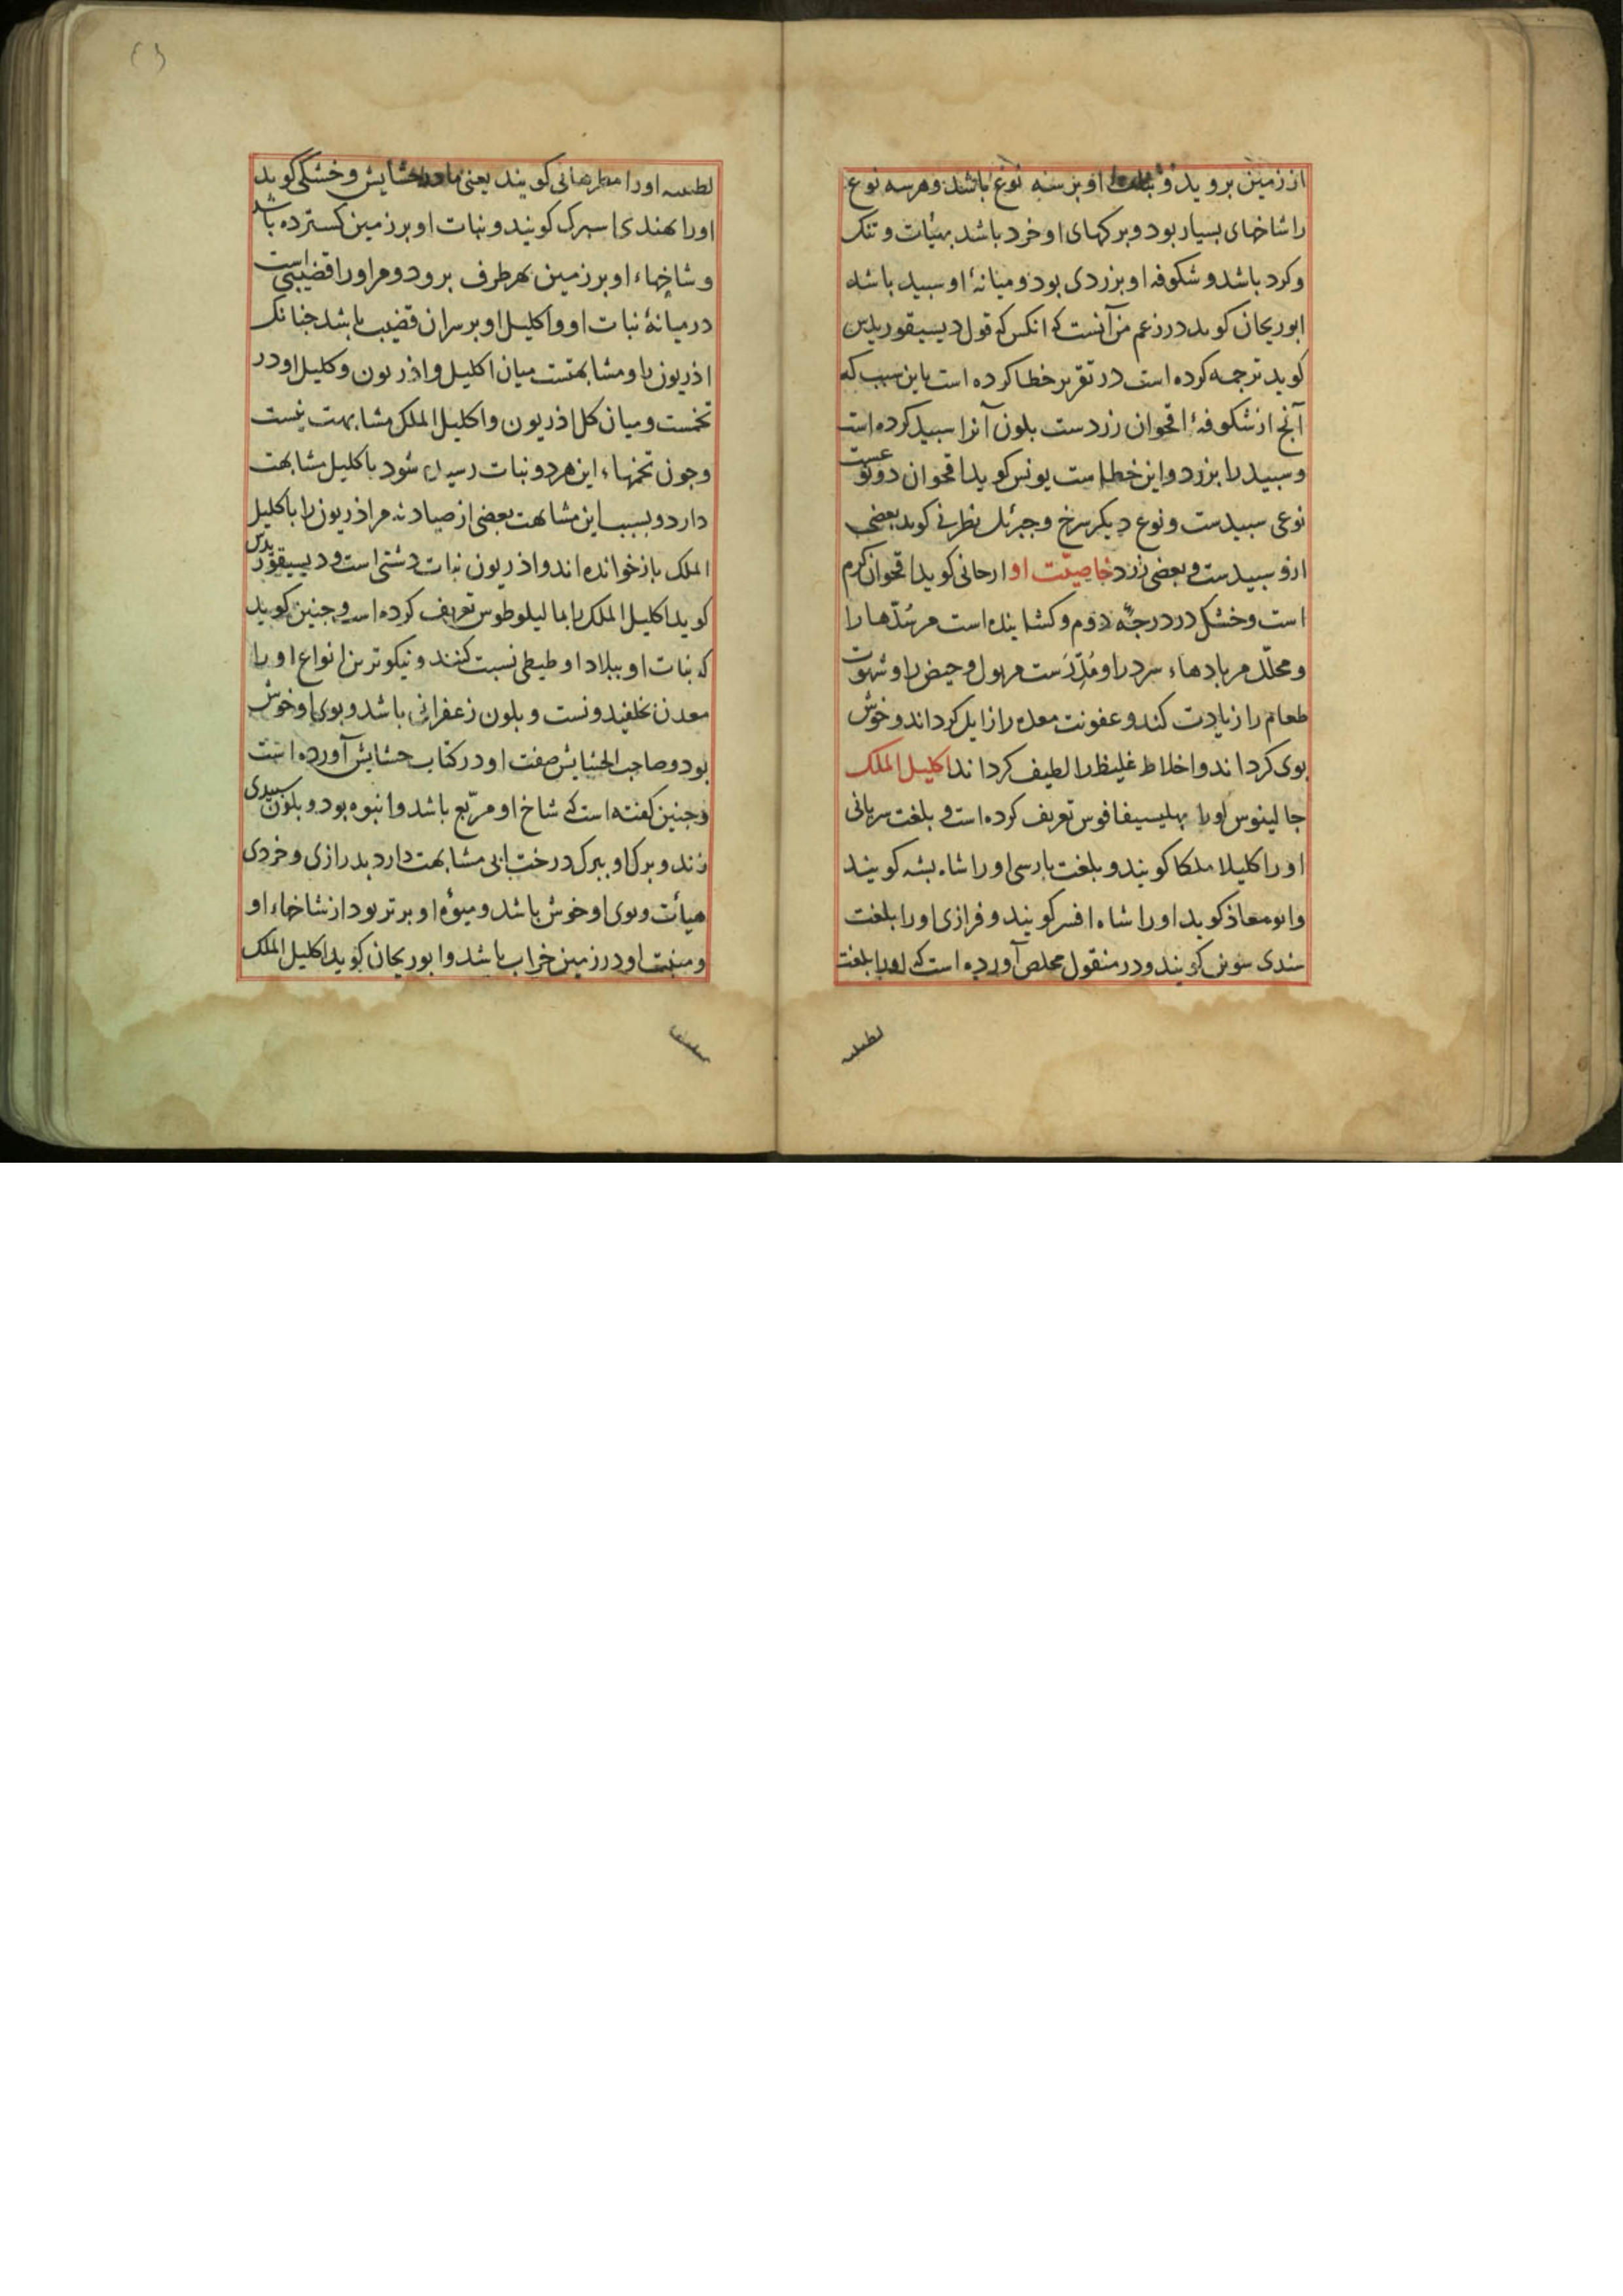 از زمین بروید و نبات او بر سه نوع باشد و هر سه نوع
را شاخهای بسیار بود و برکهای او خرد باشد بهیات و تنک
وکرد باشد و شکوفه او بزردی بود و میانهٔ او سبید باشد
ابوریحان کوید در زعم من آنست که انکس که قول دیسیقوریدس
کوید ترجمه کرده است در تقریر خطا کرده است باین سبب که
آنج از شکوفهٔ اقحوان زردست بلون آنرا سبید کرده است
و سبید را بزرد و این خطاست یونس کوید اقحوان دو نوعست
نوعی سبیدست و نوع دیکر سرخ و جبرئل کوید بعضی
ازو سبیدست و بعضی زرد خاصیّت او ارجانی کوید اقحوان کرم
است و خشک در درجهٔ دوم و کشاینده است مر سُدّها را
و محلّل مر بادهاء سرد را و مُدِرّست مر بول و حیض را و شهوت
طعام را زیادت کند و عفونت معده را زایل کرداند و خوش
بوی کرداند و اخلاط غلیظ را لطیف کرداند اکلیل الملک
جالینوس اورا بهلیسیفاقوس تعریف کرده است و بلغت سریانی
اورا کلیلا ملکا کویند و بلغت بارسی اورا شاه بسه کویند
وابومعاذ کوید اورا شاه افسر کویند و فرازی اورا بلغت
سندی سونی کویند و در منقول مخلص آورده است که اورا بلغت
لطینیه
لطینیه اورا کویند یعنی و خشکی کوید
اورا بهندی اسبرک کویند و نبات او بر زمین کسترده باشد
و شاخهاء او بر زمین بهر طرف برود و مر اورا قضیبی است
در میانهٔ نبات او و اکلیل او بر سر آن قضیب باشد جنانک
اذریون را و مشابهتست میان اکلیل و اذریون و کلیل او در
تخمست و میان کل اذریون و اکلیل الملک مشابهت نیست
وجون تخمهاء این هر دو نبات رسیده شود باکلیل مشابهت
دارد و بسبب این مشابهت بعضی از صیادنه مر اذریون را باکلیل
الملک بازخوانده اند و اذریون نبات دشتی است و دیسیقوریدس
کوید اکلیل الملک را بمالیلوطوس تعریف کرده است و جنین کوید
که نبات او ببلاد اوطیطی نسبت کنند و نیکوترین انواع اورا
معدن بخلقیدونست و بلون زعفرانی باشد و بوی او خوش
بود و صاحب الحشایش صفت او در کتاب حشایش آورده است
وجنین کفته است که شاخ او مربّع باشد و انبوه بود و بلون سبیدی
زند و برک او ببرک درخت ابی مشابهت دارد بدرازی و خردی
هیأت و بوی او خوش باشد و میوهٔ او برتر بود از شاخهاء او
و منبت او در زمین خراب باشد و ابوریحان کوید اکلیل الملک